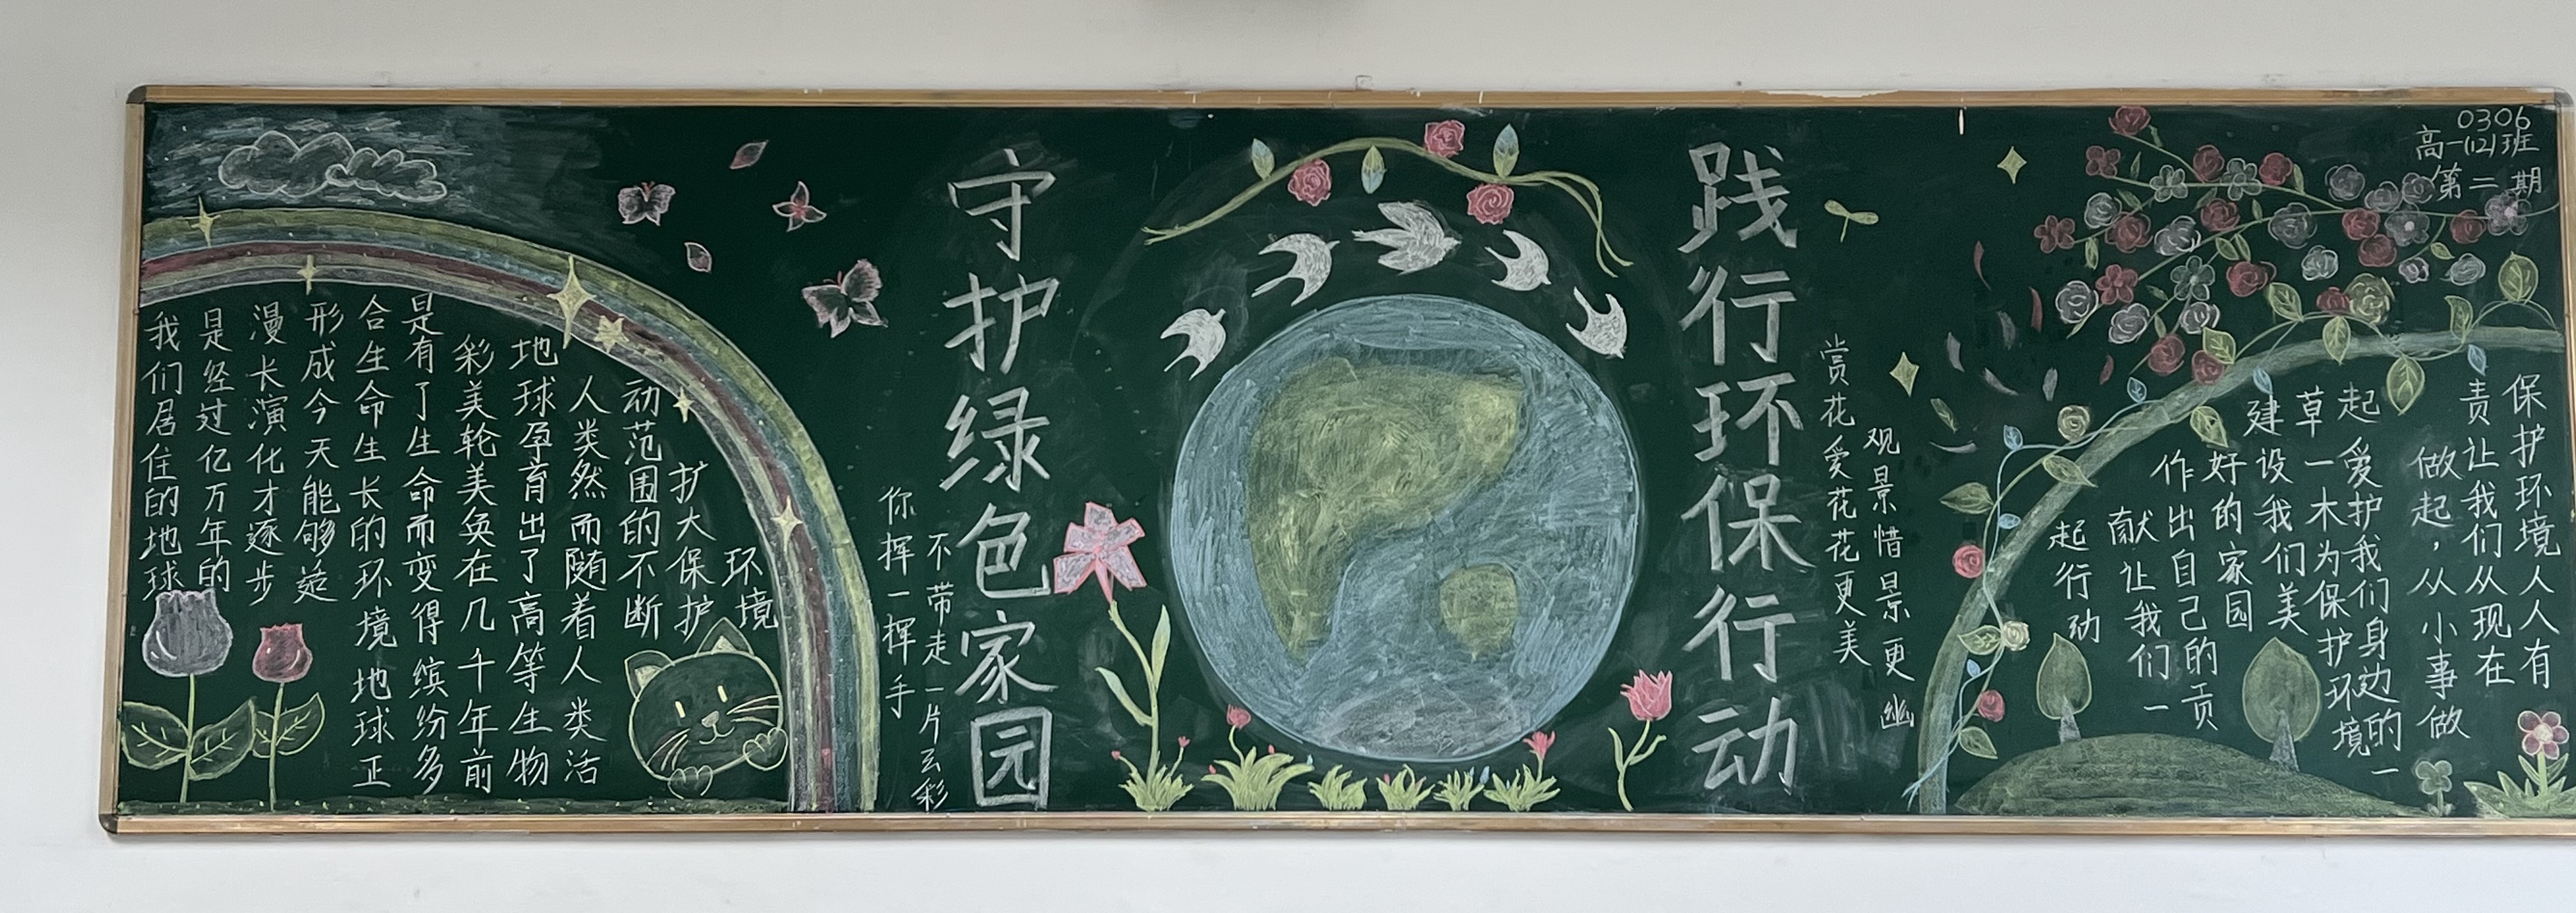 我们居住的地球
是经过亿万年的
漫长演化才逐步
形成今天能够适
合生命生长的环境地球正
是有了生命而变得缤纷多
彩美轮美奂在几千年前
地球孕育出了高等生物
人类然而随着人类活
动范围的不断
扩大保护
环境
你挥一挥手
不带走一片云彩
守护绿色家园
践行环保行动
赏花爱花花更美
观景惜景更幽
0306
高一(12)班
第二期
保护环境人人有
责让我们从现在
做起，从小事做
起爱护我们身边的一
草一木为保护环境
建设我们美
好的家园
作出自己的贡
献让我们一
起行动